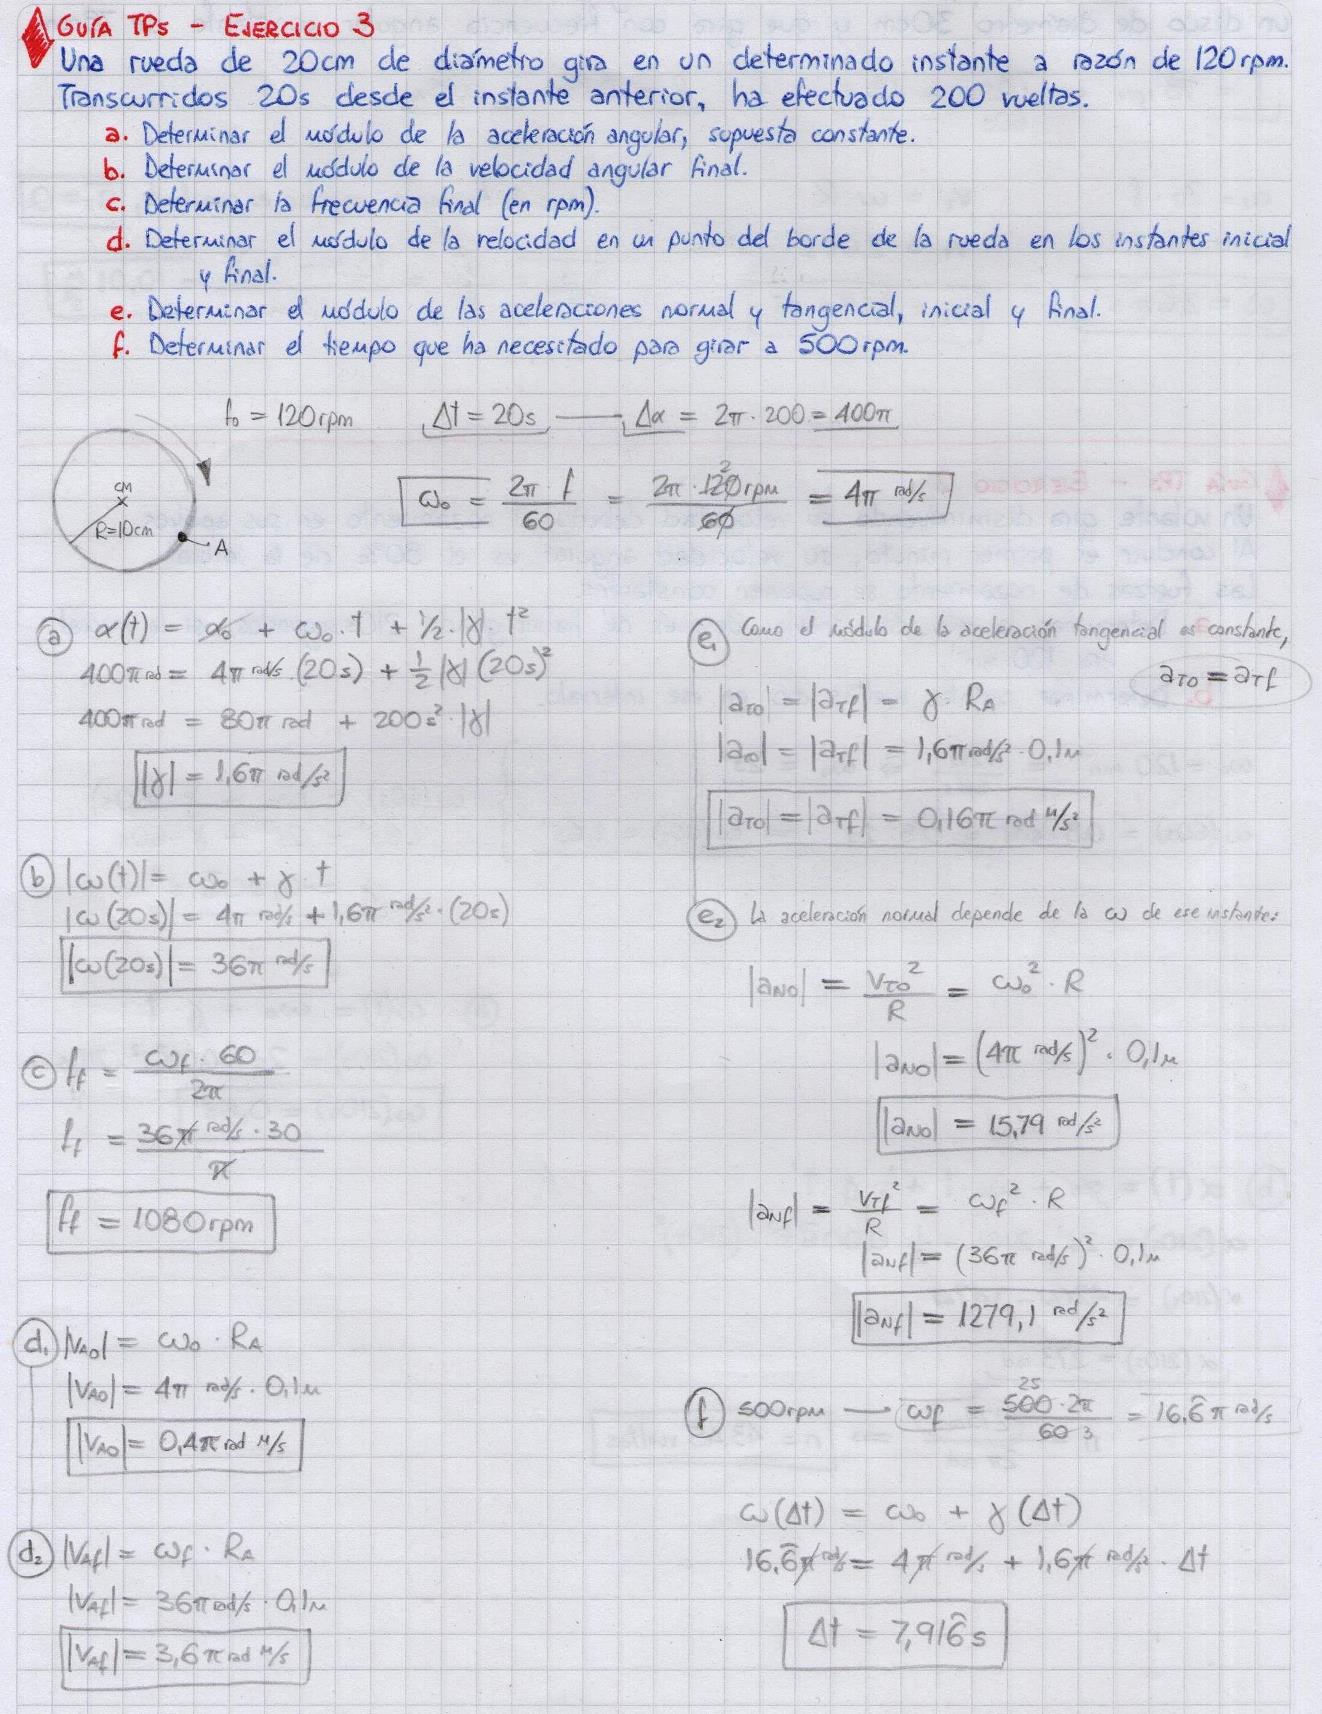 GUÍA TPs - EJERCICIO 3
Una rueda de 20cm de diámetro gira en un determinado instante a razón de 120rpm.
Transcurridos 20s desde el instante anterior, ha efectuado 200 vueltas.
a. Determinar el módulo de la aceleración angular, supuesta constante.
b. Determinar el módulo de la velocidad angular final.
c. Determinar la frecuencia final (en rpm).
d. Determinar el módulo de la velocidad en un punto del borde de la rueda en los instantes inicial
y final.
e. Determinar el módulo de las aceleraciones normal y tangencial, inicial y final.
f. Determinar el tiempo que ha necesitado para girar a 500rpm.
f₀ = 120rpm Δt = 20s — Δα = 2π · 200 = 400π
CM
R=10cm
A
ω₀ = 2π · f / 60 = 2π · 120rpm / 60 = 4π rad/s
2
a α(t) = α₀ + ω₀ · t + 1/2 · |γ| t²
400π rad = 4π rad/s · (20s) + 1/2 |γ| (20s)²
400π rad = 80π rad + 200s² · |γ|
|γ| = 1,6π rad/s²
b |ω(t)| = ω₀ + γ · t
|ω(20s)| = 4π rad/s + 1,6π rad/s² · (20s)
|ω(20s)| = 36π rad/s
c ff = ωf · 60 / 2π
ff = 36π rad/s · 30 / π
ff = 1080rpm
d₁ |VA0| = ω₀ · RA
|VA0| = 4π rad/s · 0,1m
|VA0| = 0,4π rad m/s
d₂ |VAf| = ωf · RA
|VAf| = 36π rad/s · 0,1m
|VAf| = 3,6π rad m/s
e₁ Como el módulo de la aceleración tangencial es constante,
aT0 = aTf
|aT0| = |aTf| = γ · RA
|aT0| = |aTf| = 1,6π rad/s² · 0,1m
|aT0| = |aTf| = 0,16π rad m/s²
e₂ La aceleración normal depende de la ω de ese instante:
|aN0| = VT0² / R = ω₀² · R
|aN0| = (4π rad/s)² · 0,1m
|aN0| = 15,79 rad/s²
|aNf| = VTf² / R = ωf² · R
|aNf| = (36π rad/s)² · 0,1m
|aNf| = 1279,1 rad/s²
f 500rpm — ωf = 500 · 2π / 60 = 16,6̂π rad/s
25
3
ω(Δt) = ω₀ + γ (Δt)
16,6̂π rad/s = 4π rad/s + 1,6π rad/s² · Δt
Δt = 7,916̂s